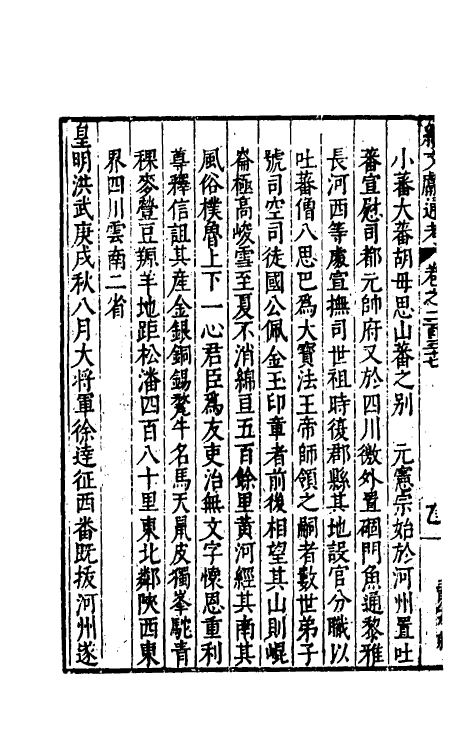 續文獻通考 卷之二百三十七
小蕃大蕃胡母思山蕃之别 元憲宗始於河州置吐
蕃宣慰司都元帥府又於四川徼外置碉門魚通黎雅
長河西等處宣撫司世祖時復郡縣其地設官分職以
吐蕃僧八思巴爲大寶法王帝師領之嗣者數世弟子
號司空司徒國公佩金玉印章者前後相望其山則崐
崙極高峻雪至夏不消綿亘五百餘里黄河經其南其
風俗樸魯上下一心君臣爲友吏治無文字懷恩重利
尊釋信詛其產金銀銅錫犛牛名馬天䑕皮獨峯駝青
稞麥䜴豆羱羊地距松潘四百八十里東北鄰陝西東
界四川雲南二省
皇明洪武庚戌秋八月大將軍徐逹征西畨既拔河州遂